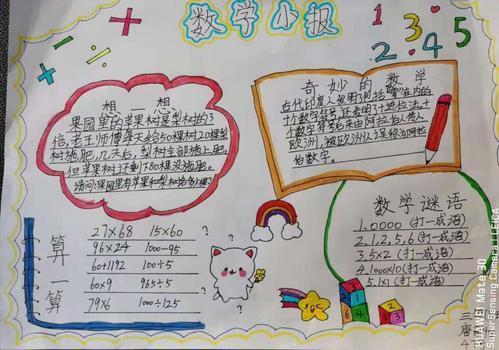 数学小报
1 3
2·4·5
想一想
果园里的苹果树是梨树的3
倍,老王师傅每天给50棵树20棵梨
树施肥,几天后,梨树全部施上肥,
但苹果树还剩下80棵没施肥。
请问:果园里有苹果和梨树
奇妙的数学
古代印度人发明了包括"零"在内的
十个数字符号,还发明了十进位法,十
个数字符号后来由阿拉伯人传入
欧洲,被欧洲人
伯数字。
算一算
27×68 15×60
96×24 1000-95
60+1192 1000÷5
60×9 965÷5
79×6 1000÷125
?
?
?
数学谜语
1.0000 (打一成语)
2.1,2,5,6(打一成语)
3.5×2 (打一成语)
4.1000×10(打一成语)
5.1×1(打一成语)
1 2 3
HUAWEI Mate 30
SuperSensing Camera | LEICA